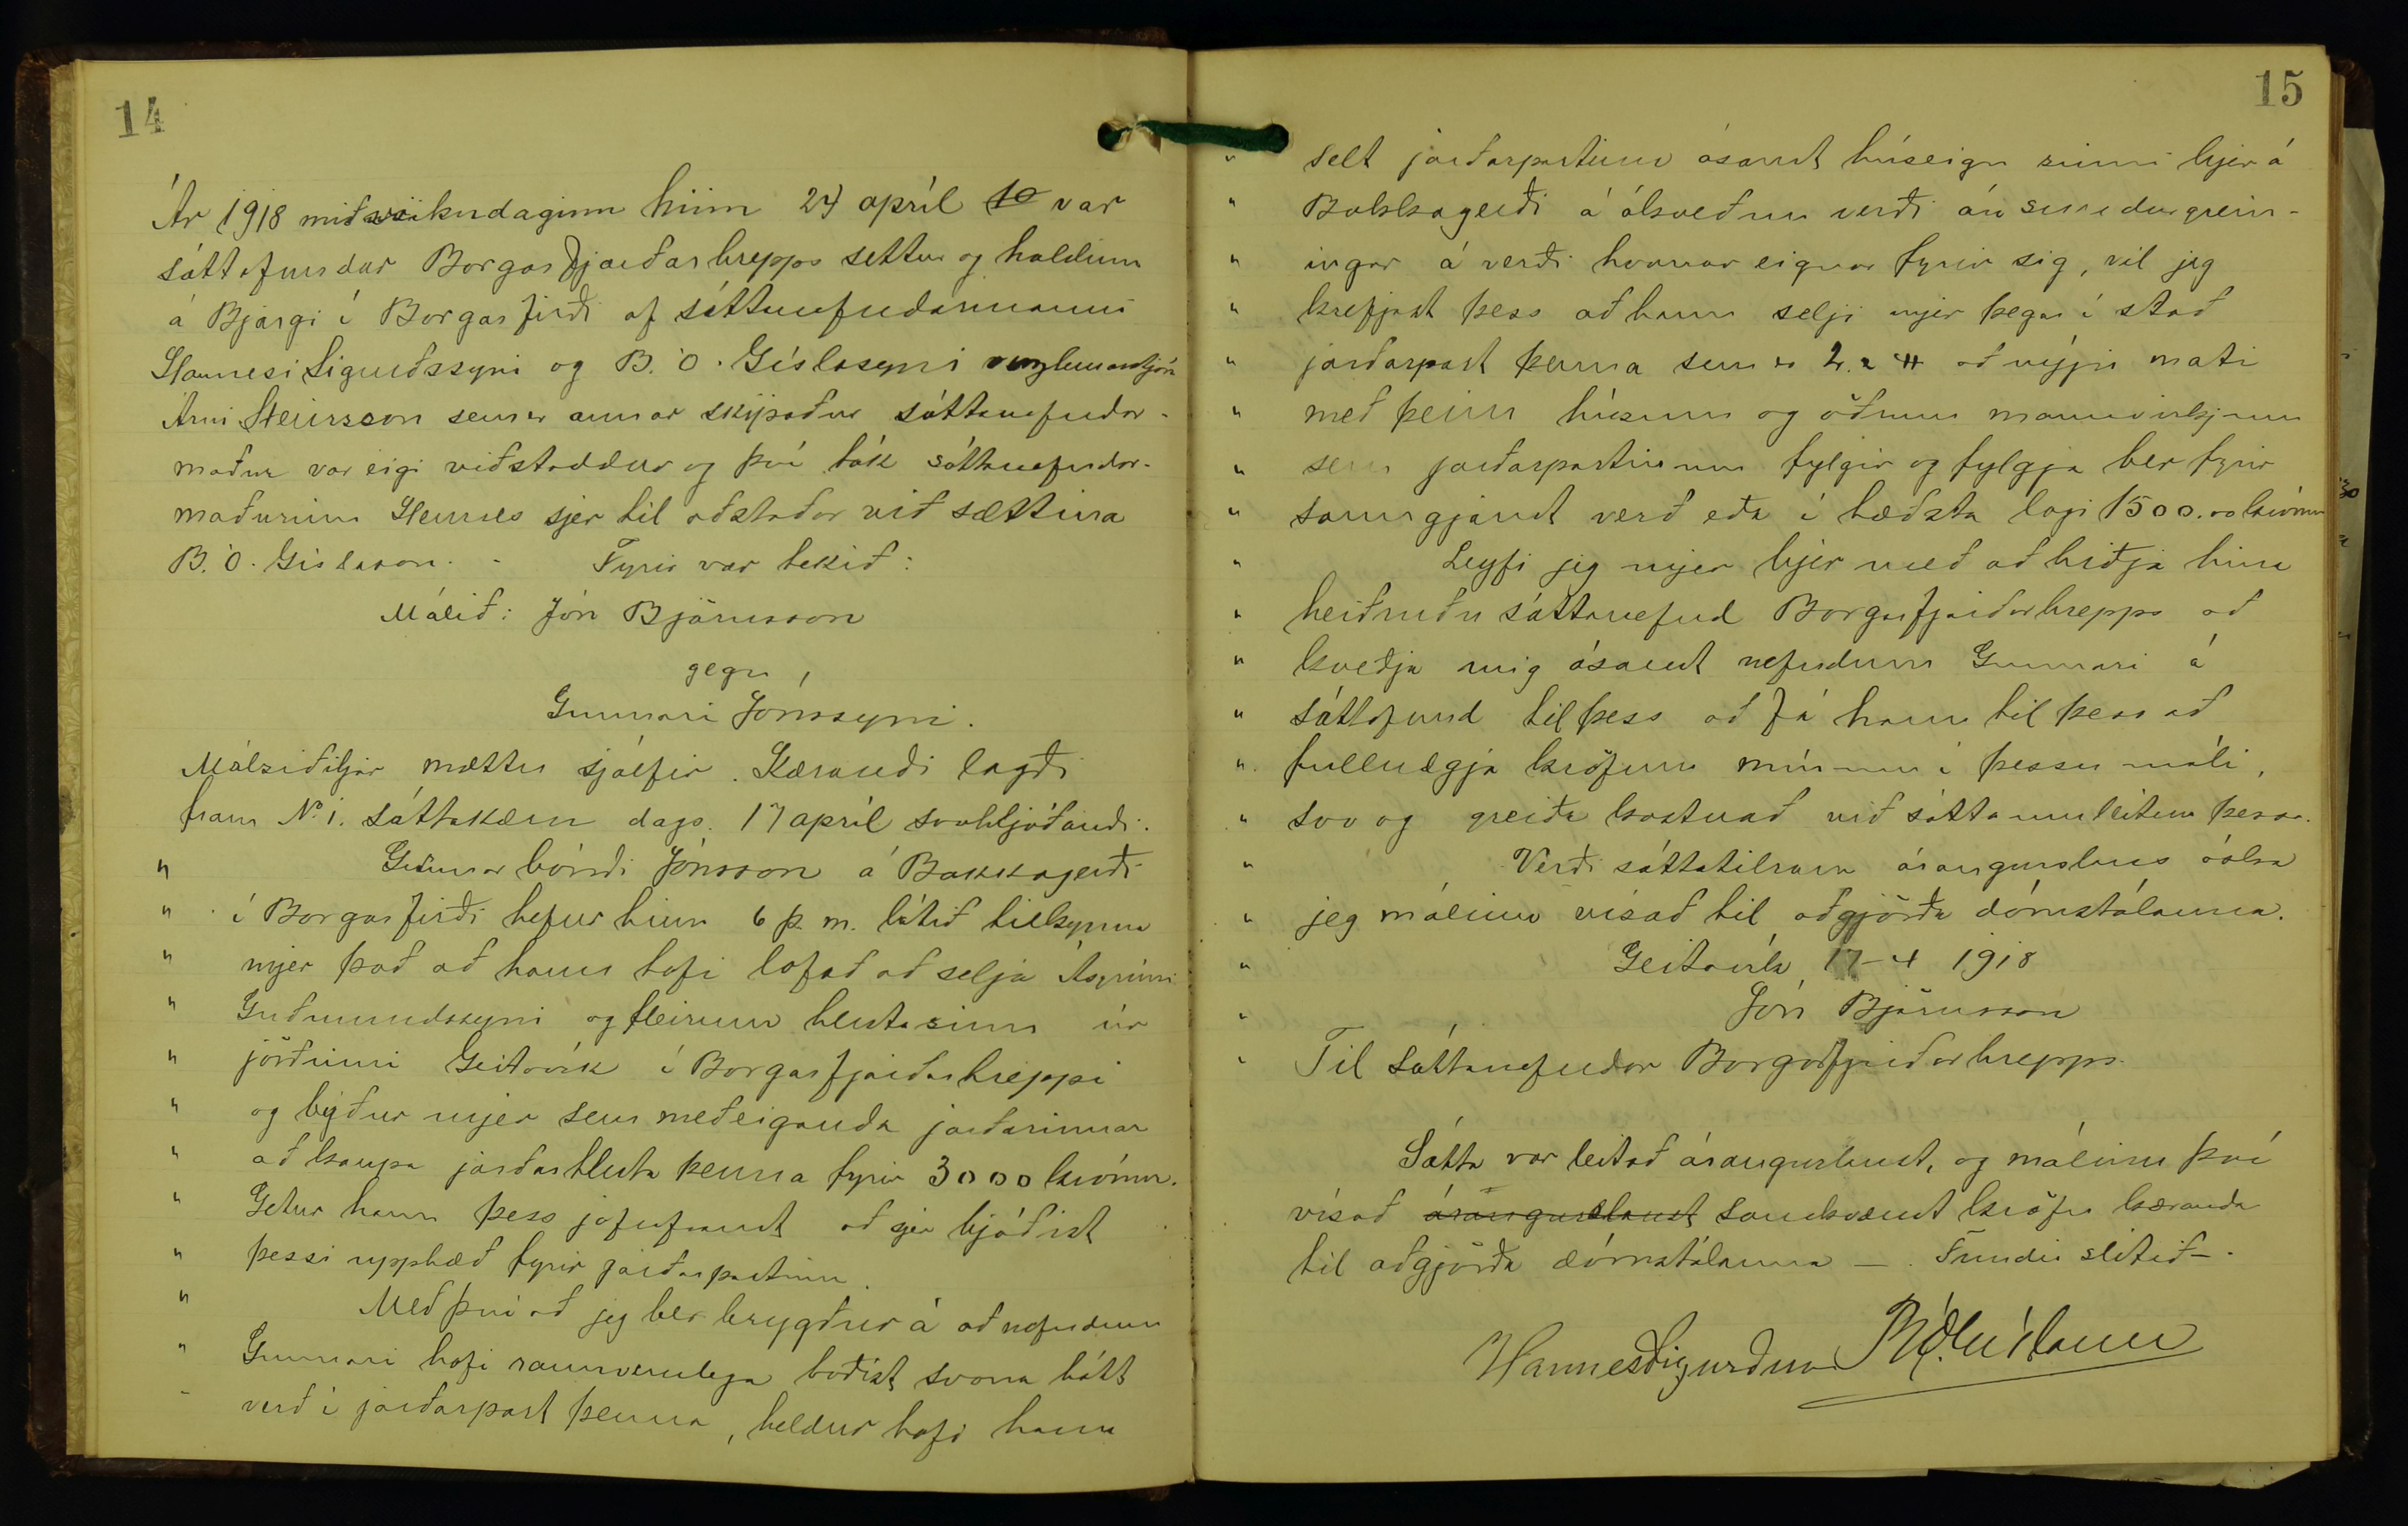 14
Ár 1918 miðvikudaginn hinn 24 apríl var
sáttafundur Borgarfjarðarhrepps settur og haldinn
á Bjargi í Borgarfirði af sáttanefndarmanni
Hannesi Sigurðssyni og B. Ó. Gíslasyni
Árni Steinsson sem er annar skipaður sáttanefndar-
maður var eigi viðstaddur og því tók sáttanefndar-
maðurinn Hannes sjer til aðstoðar við sættina
B. Ó. Gíslason. - Fyrir var tekið:
Málið: Jón Björnsson
gegn,
Gunnari Jónssyni.
Málsaðiljar mættu sjálfir. Kærandi lagði
fram No. 1. sáttakæru dags. 17 apríl svohljóðandi.
" Gunnar bóndi Jónsson á Bakkagerði
" í Borgarfirði hefur hinn 6 þ. m. látið tilkynna
" mjer það að hann hafi lofað að selja Ásgrími
" Guðmundssyni og fleirum hluta sinn úr
" jörðinni Geitavík í Borgarfjarðarhreppi
" og býður mjer sem meðeiganda jarðarinnar
" að kaupa jarðarhluta þenna fyrir 3000 krónur.
" Getur hann þess jafnframt að sjer bjóðist
" þessi upphæð fyrir jarðarpartinn.
" Með því að jeg ber brygður á að nefndum
" Gunnari hafi raunverulega boðist svona hátt
" verð í jarðarpart þenna, heldur hafi hann
15
" selt jarðarpartinn ásamt húseign sinni hjer á
" Bakkagerði á ákveðnu verði án sundurgrein-
" ingar á verði hvorrar eignar fyrir sig, vil jeg
" krefjast þess að hann selji mjer þegar í stað
" jarðarpart þenna sem er 2.2 H að nýju mati
" með þeim húsum og öðrum mannvirkjum
" sem jarðarpartinum fylgir og fylgja ber fyrir
" sanngjarnt verð eða í hæðsta lagi 1500.00 krónur
" Leyfi jeg mjer hjer með að biðja hina
" heiðruðu sáttanefnd Borgarfjarðarhrepps að
" kveðja mig ásamt nefndum Gunnari á
" sáttafund til þess að fá hann til þess að
" fullnægja kröfum mínum í þessu máli,
" svo og greiða kostnað við sáttaumleitun þessa.
" Verði sáttatilraun árangurslaus óska
" jeg málinu vísað til aðgjörða dómstólanna.
" Geitavík 17-4 1918
" Jón Björnsson
" Til sáttanefndar Borgarfjarðarhrepps.
Sátta var leitað árangurslaust, og málinu því
vísað árangurslaust samkvæmt kröfu kæranda
til aðgjörða dómstólanna —. Fundi slitið —.
Hannes Sigurðsson B.Ó. Gíslason